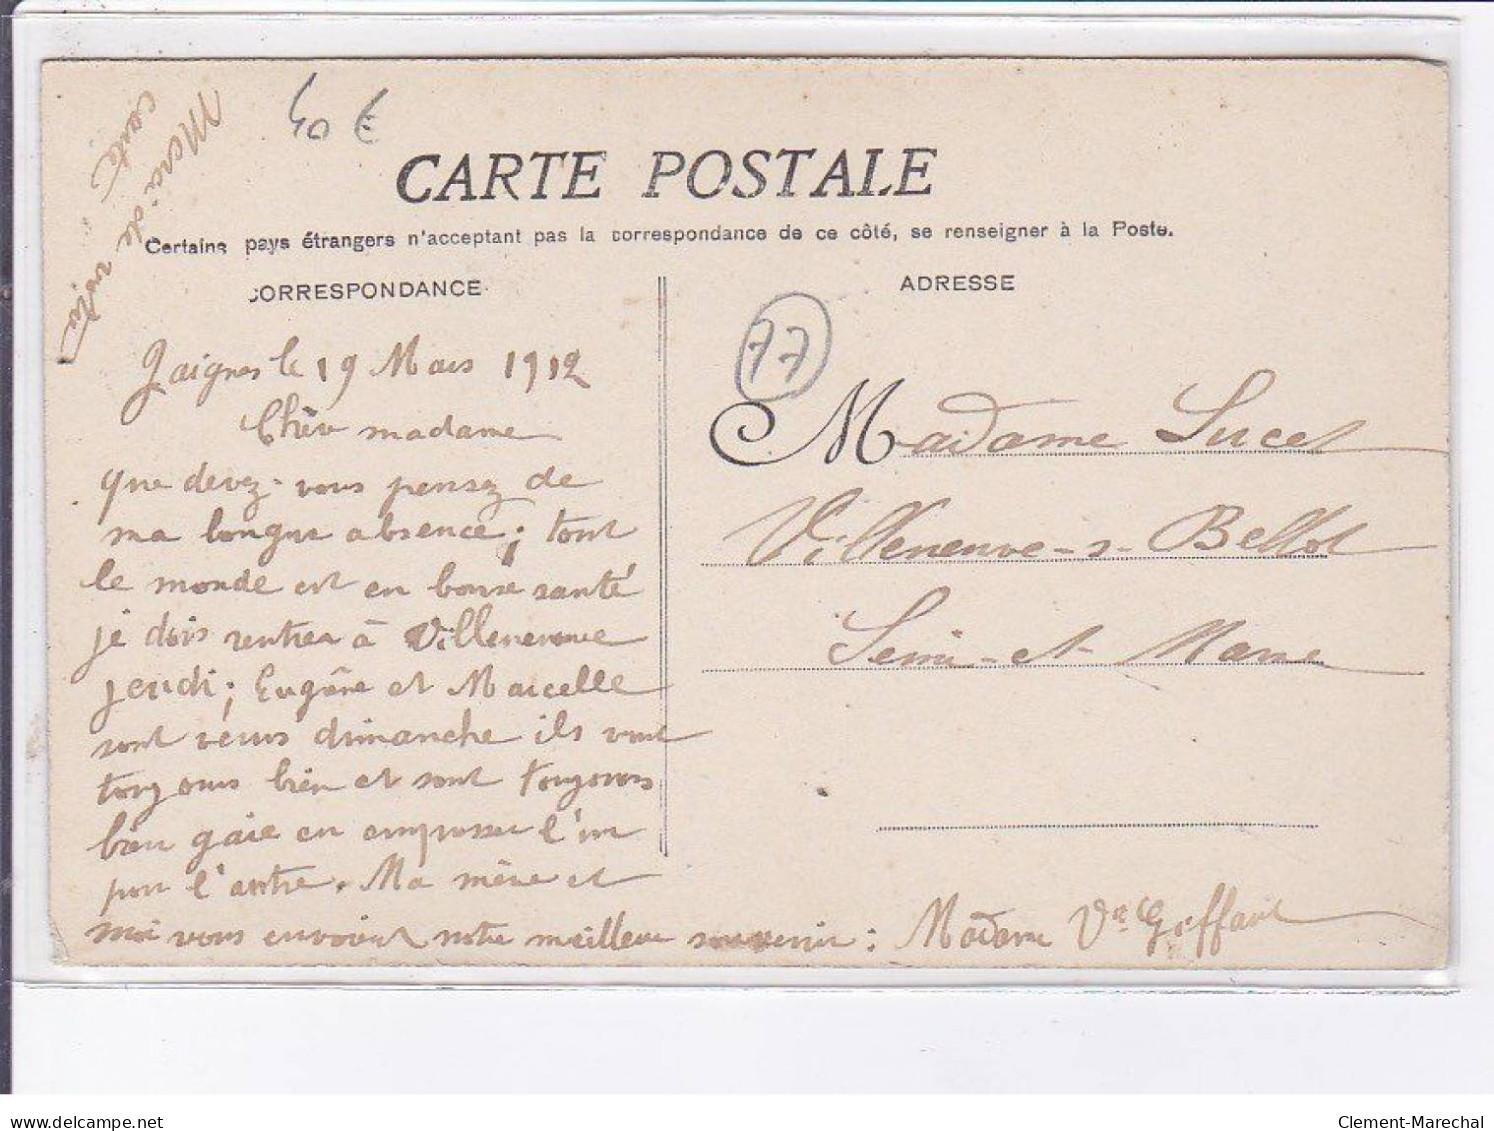 Merci de votre
carte
40 €
CARTE POSTALE
Certains pays étrangers n'acceptant pas la correspondance de ce côté, se renseigner à la Poste.
CORRESPONDANCE
ADRESSE
77
Jaignes le 19 Mars 1912
Chère madame
que devez-vous pensez de
ma longue absence; tout
le monde est en bonne santé
je dois rentrer à Villeneuve
jeudi; Eugène et Marcelle
sont venus dimanche ils vont
toujours bien et sont toujours
bien gaie en empresser l'un
pour l'autre. Ma mère et
moi vous envoient notre meilleur souvenir: Madame Vve Giffaut
Madame Lucet
Villeneuve-s-Bellot
Seine-et-Marne
delcampe.net
Clement-Marechal